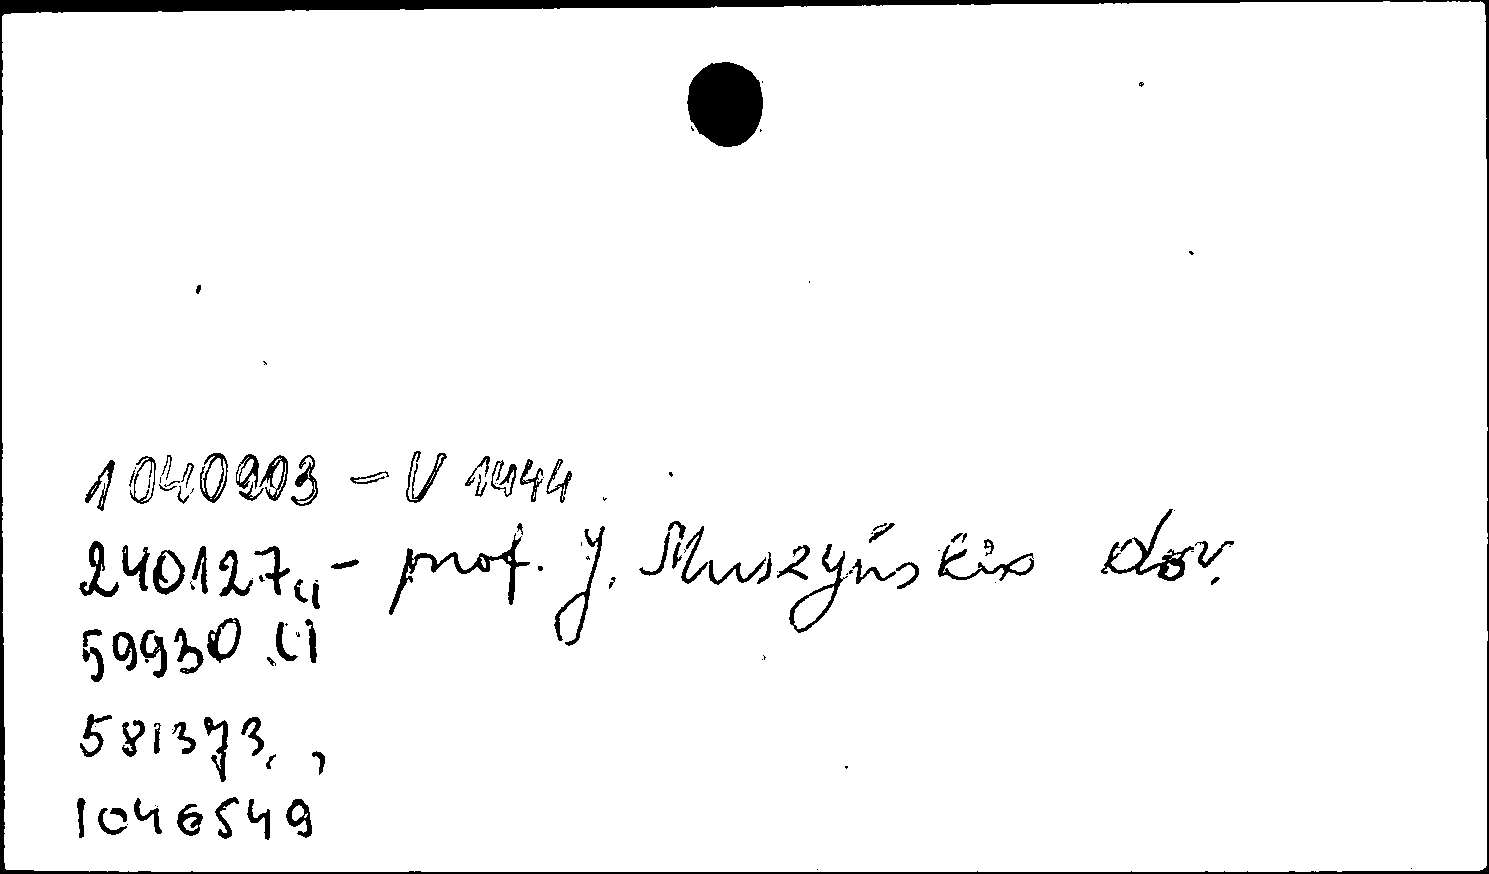 1040903 - V 1444
240127 - prof. J. Muszyńskix dov.
59930
581373,
1046549